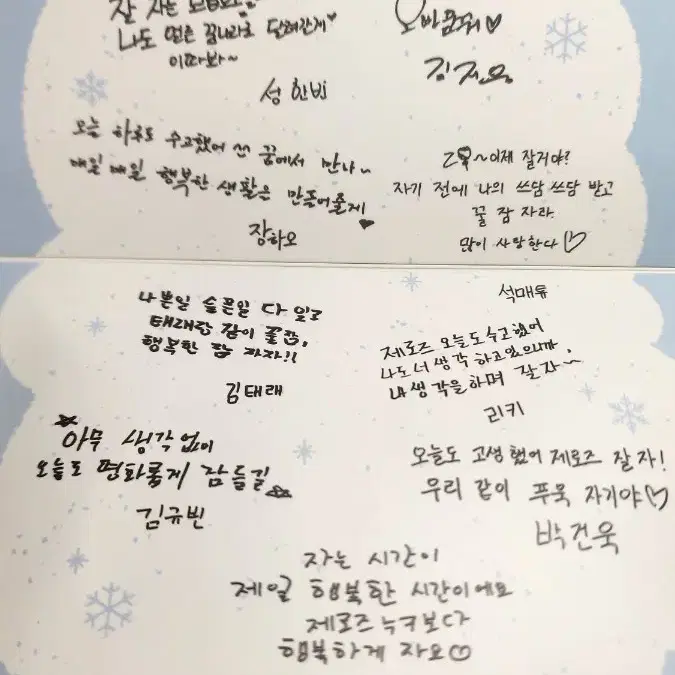 잘 자는
나도 얼른 꿈나라로 달려갈게
이따봐~
성한빈
오빠꿈꿔♡
김지웅
오늘 하루도 수고했어 쓴 꿈에서 만나~
매일 매일 행복한 생활은 만들어줄게♥
장하오
이제 잘거야?
자기 전에 나의 쓰담 쓰담 받고
꿀 잠 자라.
많이 사랑한다♡
석매튜
나쁜일 슬픈일 다 잊고
태래랑 같이 꿀잠,
행복한 잠 자자!!
김태래
제로즈 오늘도 수고했어
나도 너 생각 하고있으니까
내 생각을 하며 잘 자~
리키
아무 생각없이
오늘도 평화롭게 잠들길
김규빈
오늘도 고생했어 제로즈 잘자!
우리 같이 푸욱 자기야♡
박건욱
자는 시간이
제일 행복한 시간이에요
제로즈 누구보다
행복하게 자요♡